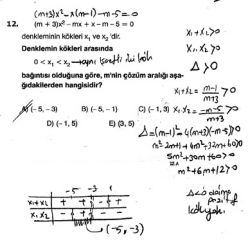 (m+3)x²-x(m-1)-m-5=0
12. (m + 3)x² - mx + x - m - 5 = 0
denkleminin kökleri x₁ ve x₂ 'dir.
Denklemin kökleri arasında
0 < x₁ < x₂ → aynı işaretli iki kök
bağıntısı olduğuna göre, m'nin çözüm aralığı aşa-
ğıdakilerden hangisidir?
A) (-5, -3) B) (-5, -1) C) (-1, 3)
D) (-1, 5) E) (3, 5)
x₁+x₂>0
x₁.x₂>0
Δ>0
x₁+x₂ = m-1/m+3 >0
x₁.x₂ = -m-5/m+3 >0
Δ=(m-1)²-4(m+3)(-m-5)>0
m²-2m+1+4m²+32m+60>0
5m²+30m+60>0
m²+6m+12>0
Δ<0 daima
-5 -3 1
x₁+x₂ + + - +
x₁x₂ - + - -
(-5,-3)